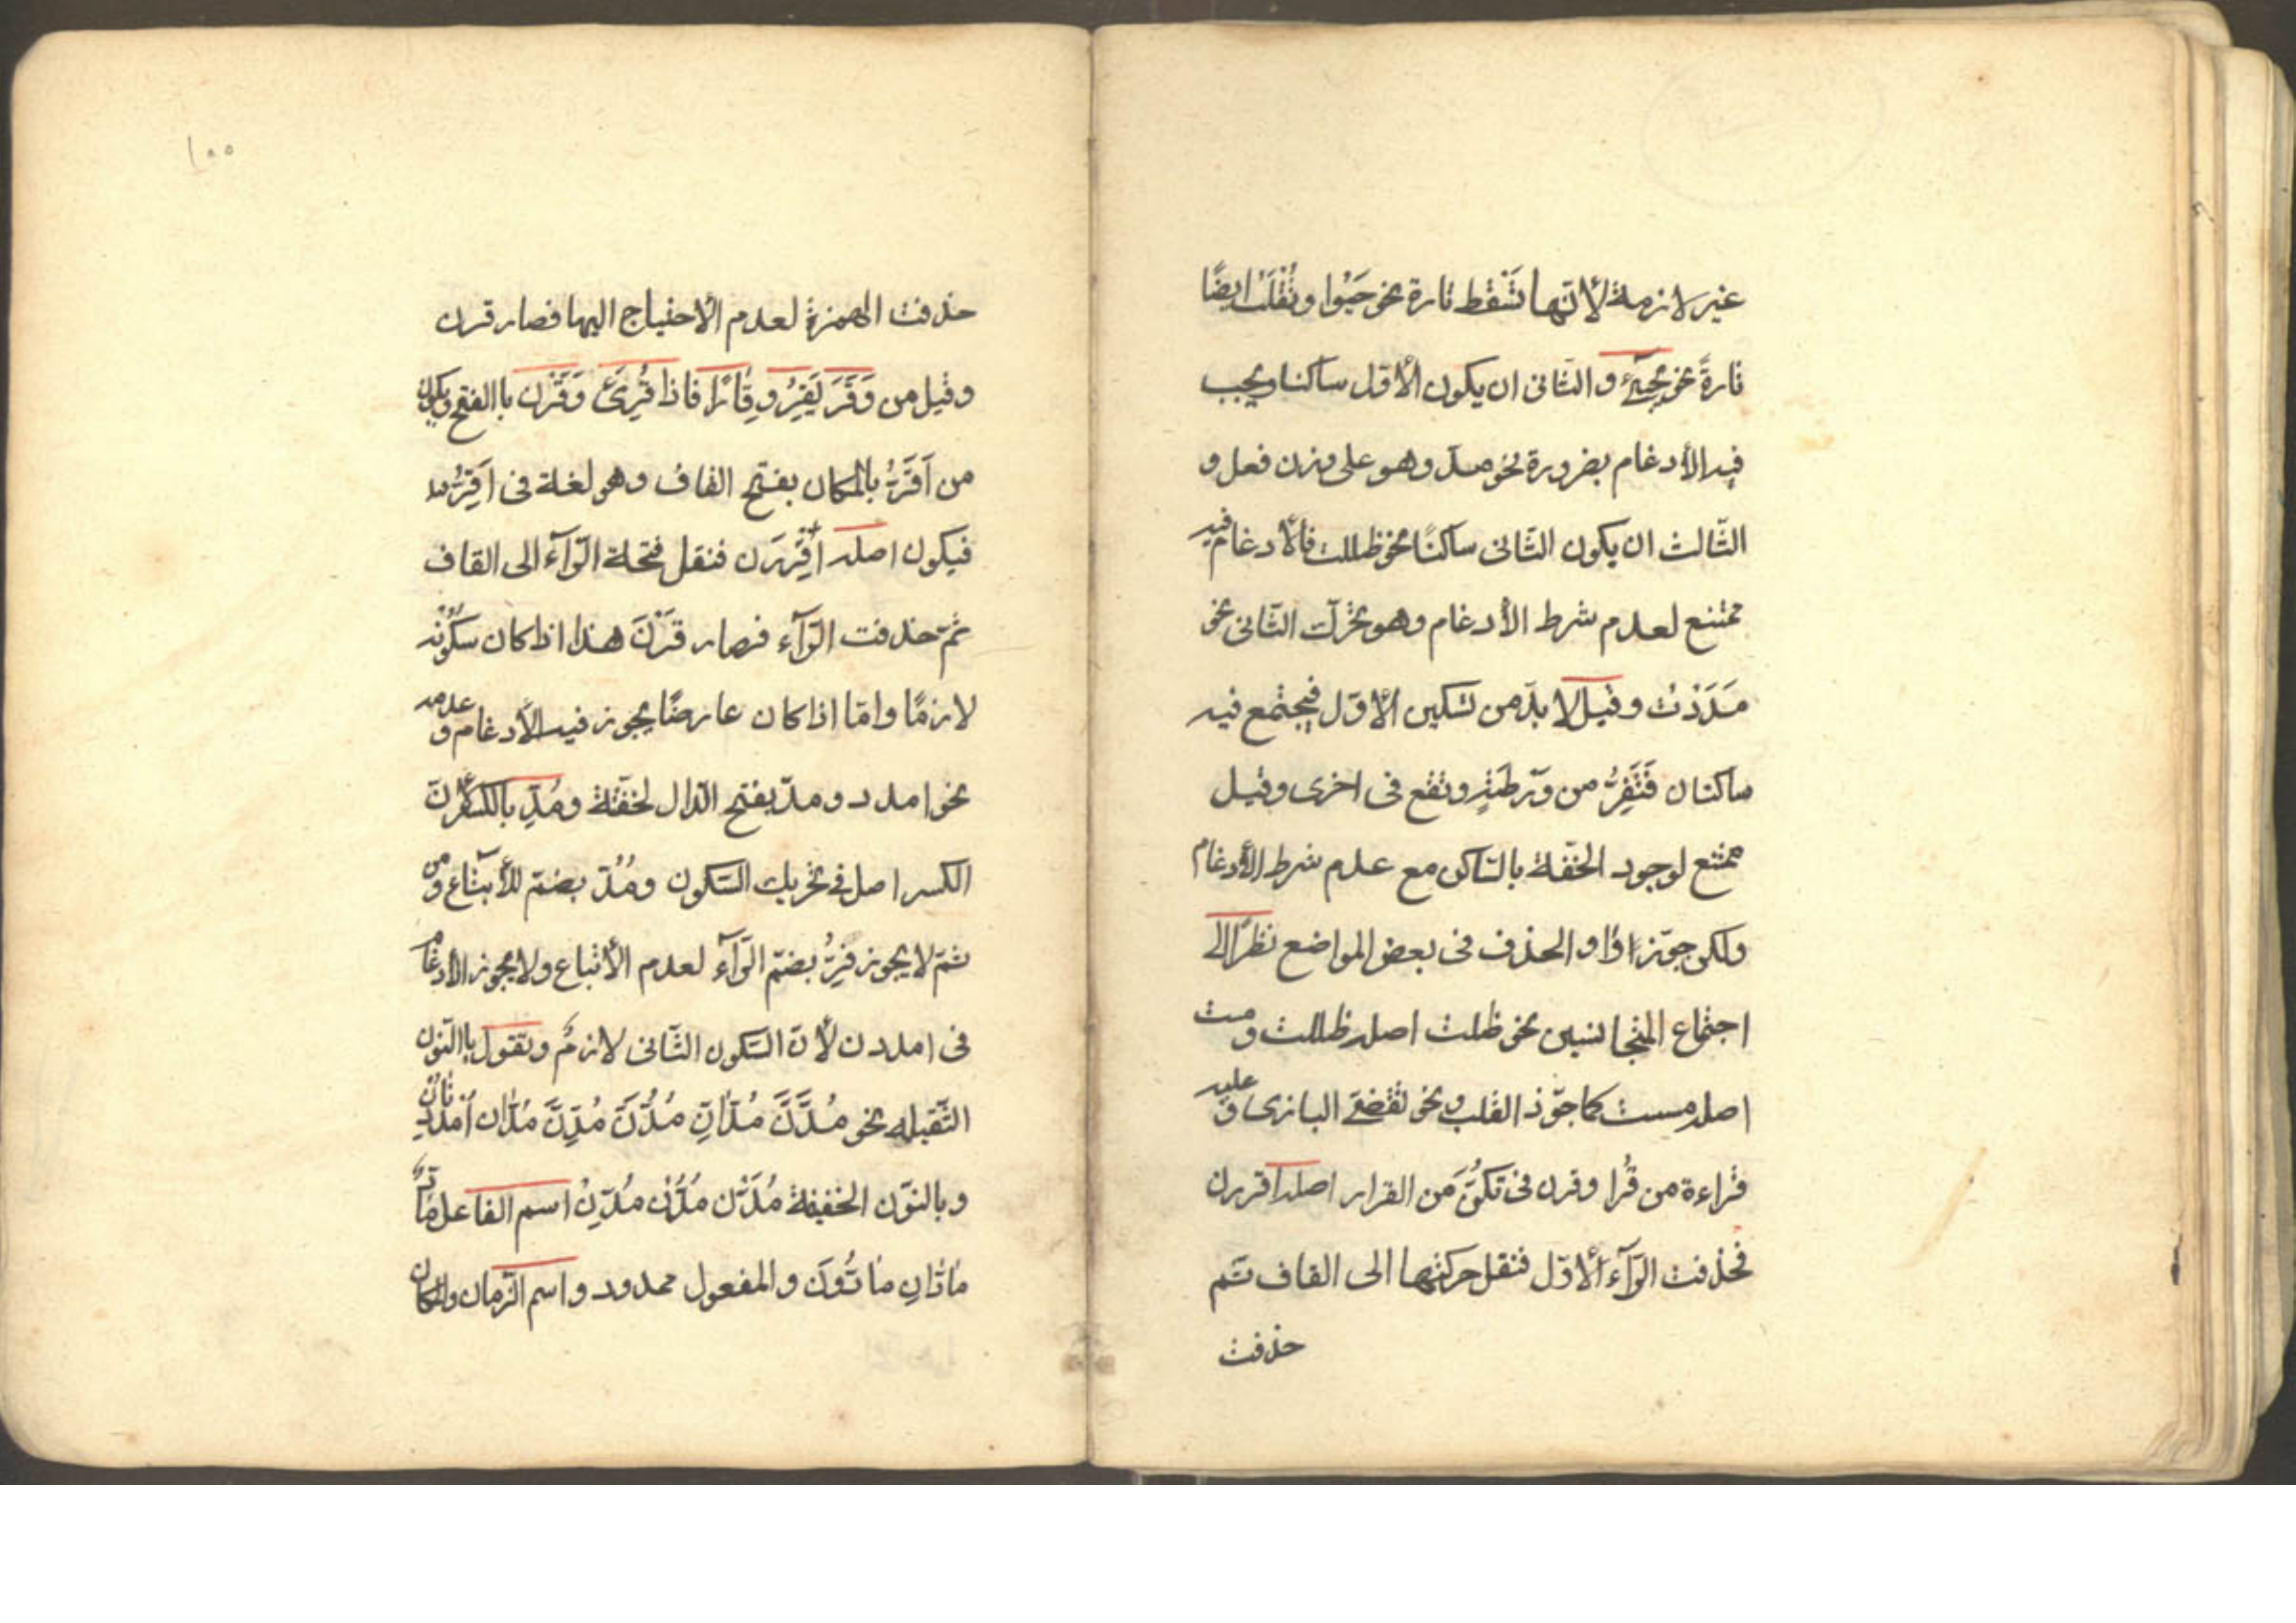 غير لازمة لأنّها تَسْقط تارة نحو حَيُوا وتُقْلَبُ ايضًا
تارةً نحو يحيىٰ والثانى ان يكون الأوّل ساكنا ويجب
فيه الأدغام بضرورة نحو مدّ وهو على وزن فعل و
الثّالث ان يكون الثّانى ساكنًا نحو ظللت فالأدغام فيه
ممتنع لعدم شرط الأدغام وهو تحرّك الثّانى نحو
مَدَدْتُ وقيل لا بدّ من تسكين الأوّل فيجتمع فيه
ساكنان فَتَفِرُّ من ورطَةٍ وتقع فى اخرى وقيل
ممتنع لوجود الخفّة بالسّاكن مع عدم شرط الأدغام
ولكن جوّزوا الحذف فى بعض المواضع نظرًا الى
اجتماع المتجانسين نحو ظلت اصله ظللت ومست
اصله مسست كما جوّز القلب فى نحو تقضّى البازى وعليه
قراءة من قُرا وقرن فى بيوتكنّ من القرار اصله اقررن
فحذفت الرّآء الأوّل فنقل حركتها الى القاف ثمّ
حذفت
١٥٥
حذفت الهمزة لعدم الأحتياج اليها فصار قرن
وقيل من وَقَرَ يَقِرُ وِقَارًا فاذا قُرِئَ وَقَرْن باالفتح ويكون
من اَقَرُّ بالمكان بفتح القاف وهو لغة فى اَقِرُّ به
فيكون اصله اقْرَرَن فنقل فتحة الرّآء الى القاف
ثمّ حذفت الرّآء فصار قَرْنَ هذا اذا كان سكُونُه
لازمًا وامّا اذا كان عارضًا يجوز فيه الأدغام وعدمه
نحو امدد ومدّ بفتح الدّال لخفّته ومُدِّ بالكسر لأنّ
الكسر اصل فى تحريك السّكون ومُدُّ بضمّ للأتباع ومن
ثمّ لا يجوز فِرُّ بضمّ الرّآء لعدم الأتباع ولا يجوز الأدغام
فى امددن لأنّ السّكون الثّانى لازمٌ وتقول باالنّون
الثّقيله نحو مُدَّنَّ مُدّانِّ مُدُّنَّ مُدِّنَّ مُدّان اُمْدُدْنانِّ
وبالنوّن الخفيفة مُدَّنْ مُدُّنْ مُدِّنْ اسم الفاعل مَادٌّ
مَادّانِ مَادّونَ والمفعول ممدود واسم الزّمان والمكان